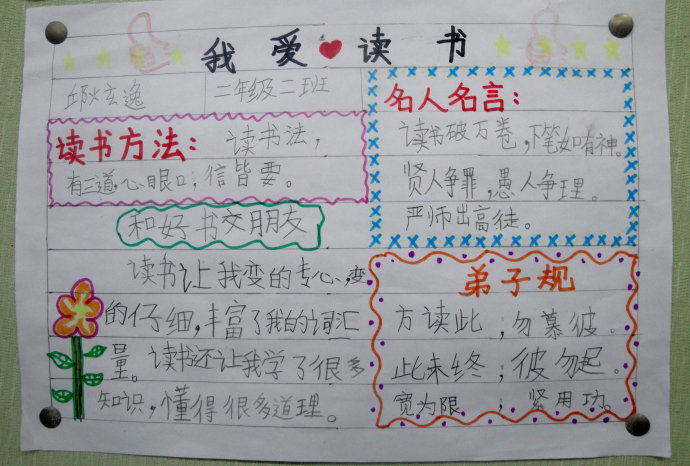 我爱读书
邱炏玄逸 二年级二班
读书方法：读书法，
有三道，心眼口；信皆要。
和好书交朋友
读书让我变的专心、变
的仔细，丰富了我的词汇
量。读书还让我学了很多
知识，懂得很多道理。
名人名言：
读书破万卷，下笔如有神。
贤人争罪，愚人争理。
严师出高徒。
弟子规
方读此；勿慕彼。
此未终；彼勿起。
宽为限；紧用功。